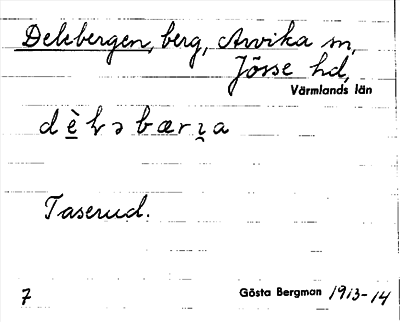 Delebergen, berg, Arvika sn,
Jösse hd,
Värmlands län
Taserud.
7
Gösta Bergman 1913-14